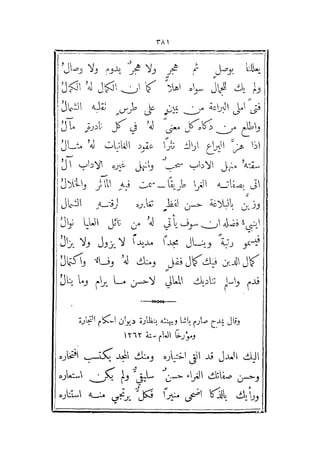 ٣٨١
يعللنا بوصلٍ ثم هجرٍ ولا هجرٌ يدوم ولا وصالُ
ولم يك للجمال سواه اهلاً كما ان الكمال لهُ الكمالُ
فتىً املى البراعة من يمينٍ على طرسٍ نقلبه الشمالُ
واطلع من ذكاه كل معنىً لهُ في كل نادرةٍ مآلُ
اذا هزَّ اليراع اراك نثراً عقود الغانيات لهُ مثالُ
سقته منهل الاداب سحبٌ وانهل غيره الاداب آلُ
اتى بصفاته الغرا طريقاً سمت فيهِ المآثر والخلالُ
وزينَ بالبلاغة حسن لفظٍ تعايره لرقته الشمالُ
فضله ان سوف يأتي لهُ من نائل العليا نوالُ
فيسمو رتبةً وينال مجداً مديداً لا يزول ولا يزالُ
كمال الدين فيك كمال فضلٍ ومنك لهُ وفالا واكتمالُ
فدم واسلم تناديك المعالي لاحسن ما يرام وما ينالُ
وقال يمدح صارم باشا ويهنئه بنظارة ديوان احكام التجارة
ومؤرخاً العام سنة ١٢٦٢
اليك العدل قد القى اختياره ومنك المجد يكتسب افتخاره
وحسن صفاتك الغراء حسنٌ سليقيٌّ ولم يكن استعاره
ورأيك بالذكا اضحى منيراً فكلٌّ يرتجي منه استناره